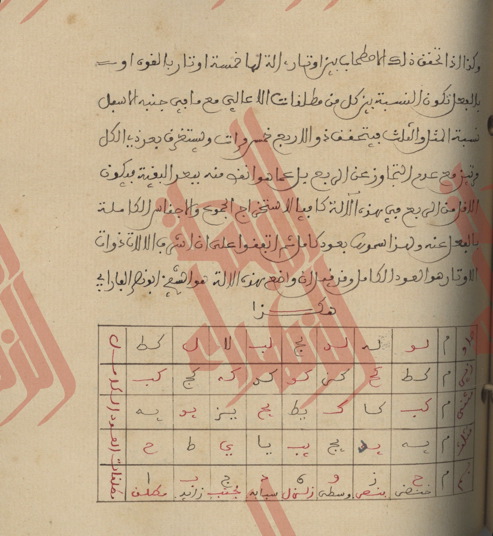 وكذا اذا تحقق ذلك الاصطحاب بين اوتار الة لها خمسة اوتار بالقوة او
بالفعل تكون النسبة بين كل من مطلقات الاعالي مع ما في جنبه الاسفل
نسبة المثل والثلث فيتحقق ذو الاربع خمس مرات ويستغرق بعد ذي الكل
مرتين مع عدم التجاوز عن الربع بل عما هو انقص منه ببعد البقية فيكون
الاقل من الربع في هذه الآلة كافيا لاستخراج الجموع والاجناس الكاملة
بالفعل عنه ولهذا سميت بعود كامل ثم اتفقوا على ان اشرف الالات ذوات
الاوتار هو العود الكامل وقد قيل ان واضع هذه الالة هو الشيخ ابو نصر الفارابي
هكذا
م لو له لد لج لب لا ل كط
م كط كح كز كو كه كد كج كب
م كب كا ك يط يح يز يو يه
م يه يد يج يب يا ي ط ح
م ح ز و ه د ج ب ا
خنصر بنصر وسطى زلزل سبابة مجنب زائد مطلق
مطلقات العود الكامل